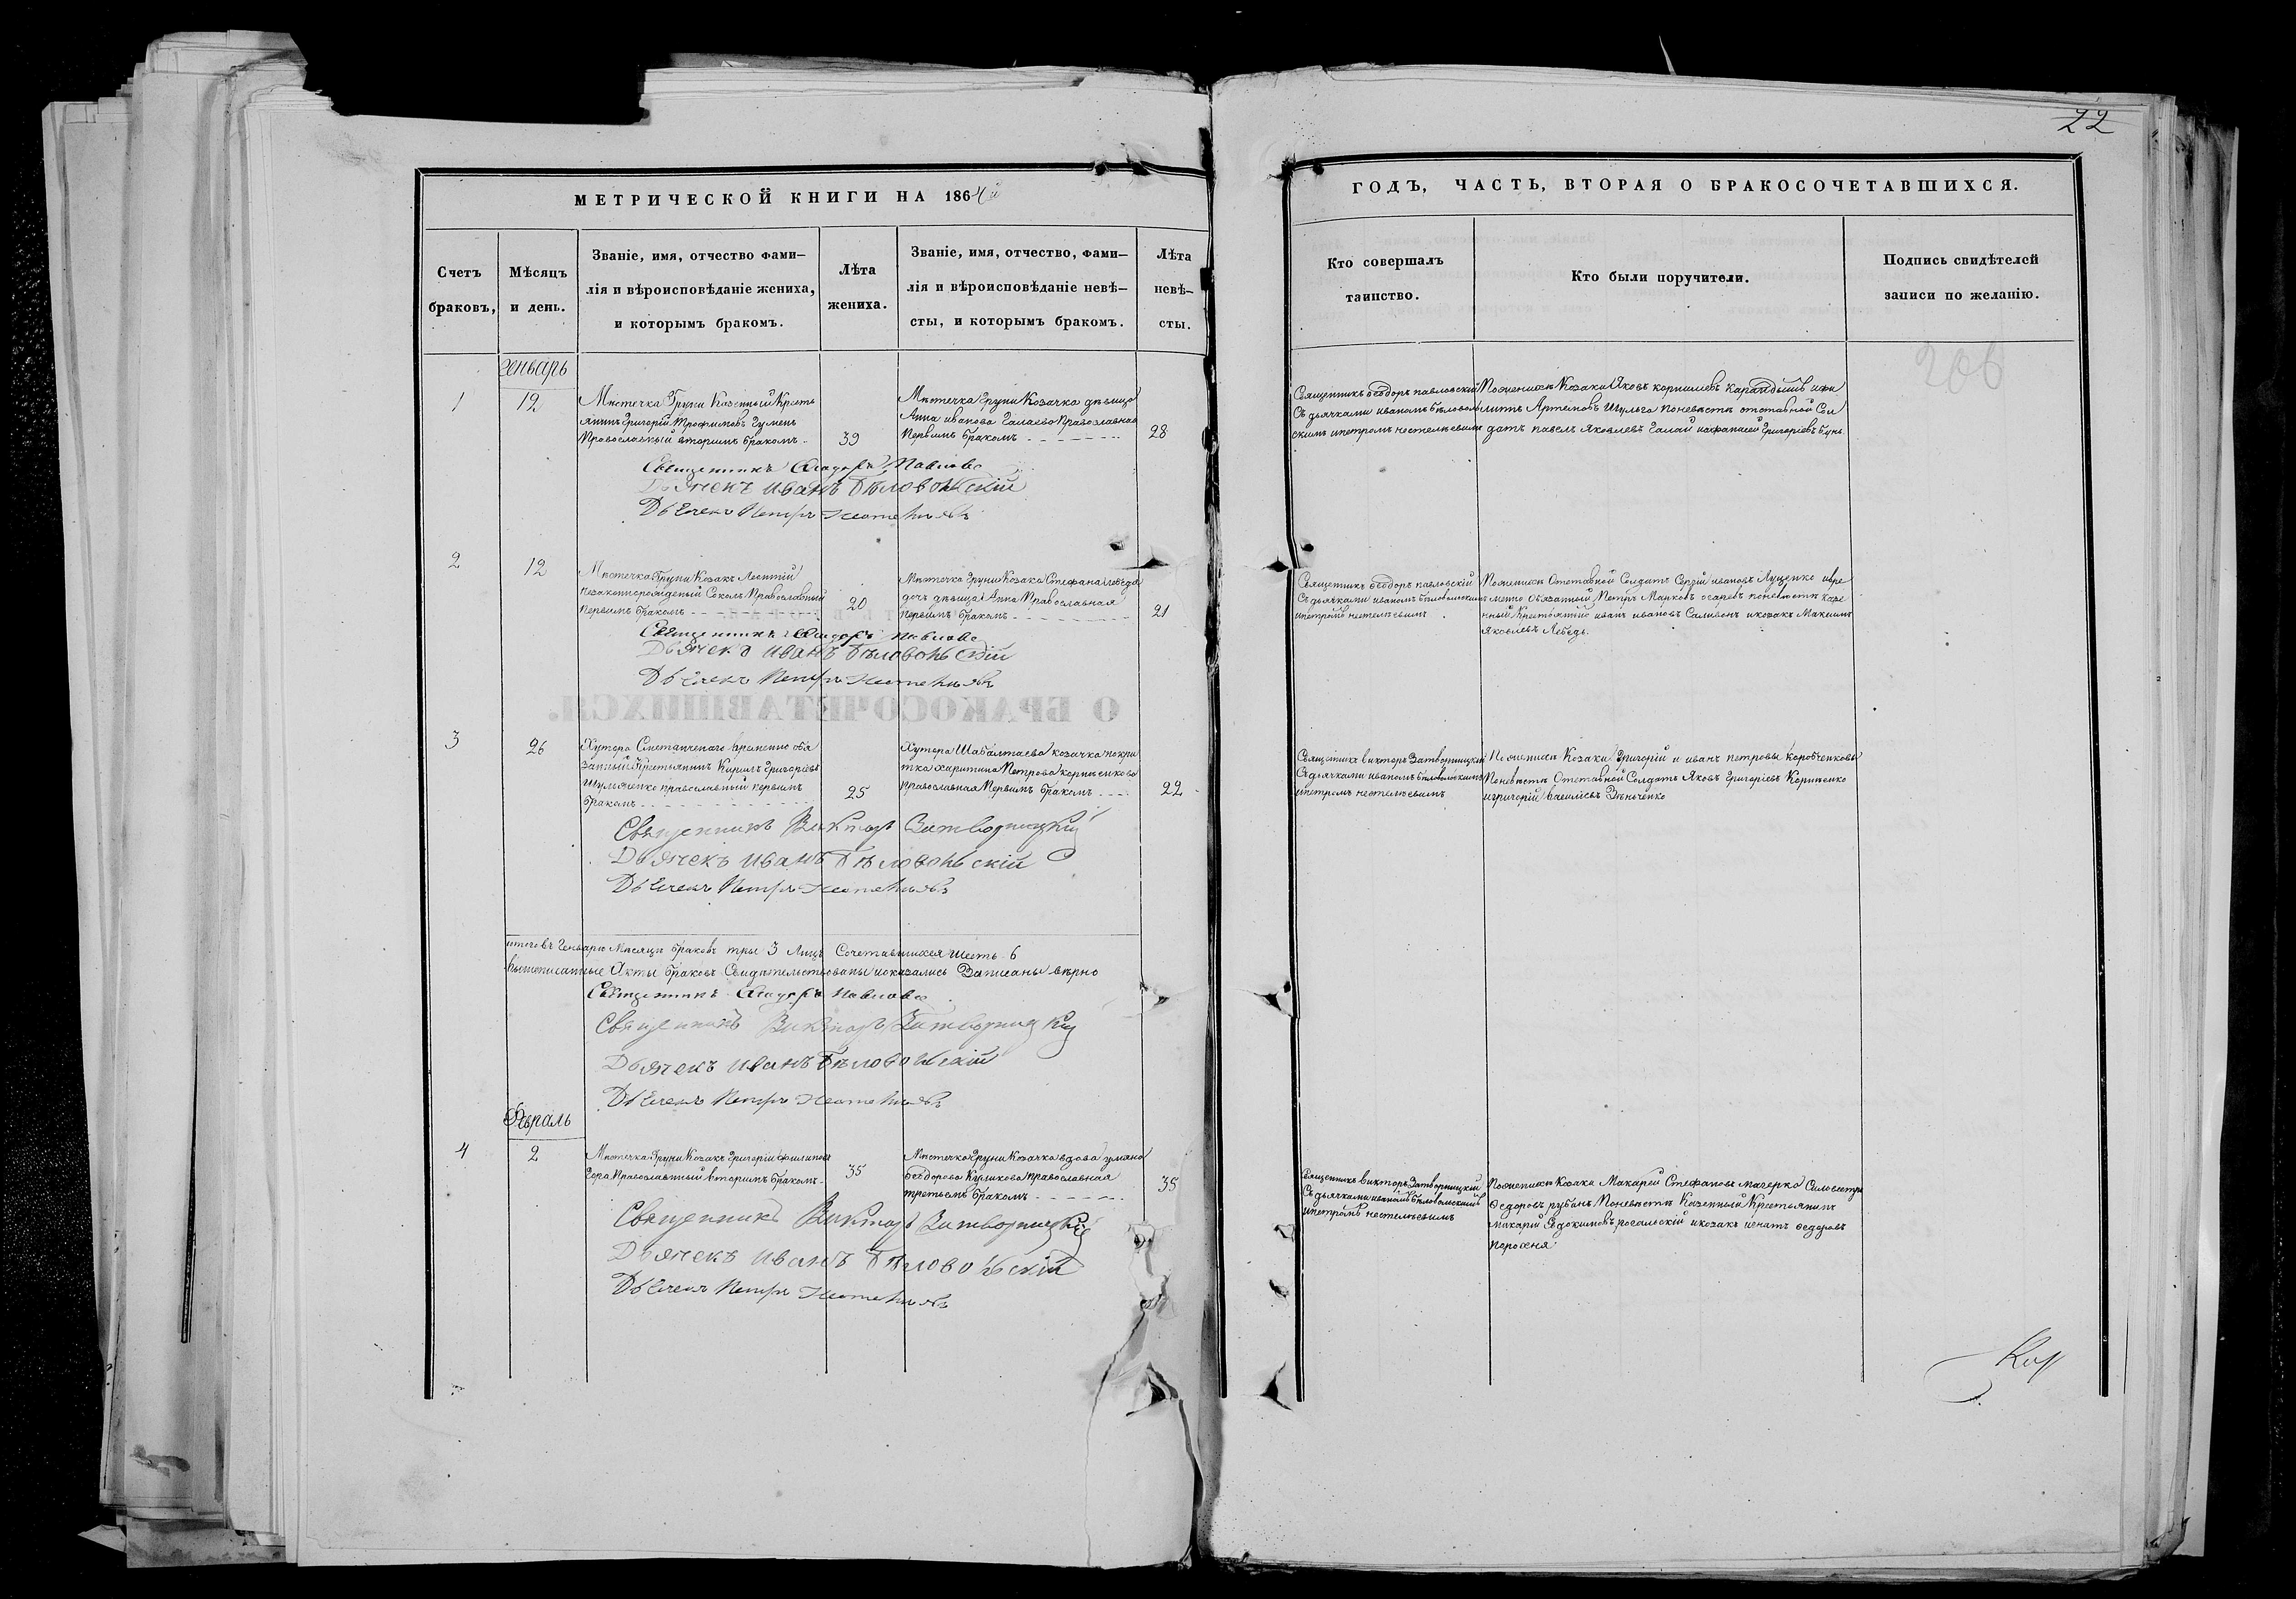 22
МЕТРИЧЕСКОЙ КНИГИ НА 1864й
ГОДЪ, ЧАСТЬ, ВТОРАЯ О БРАКОСОЧЕТАВШИХСЯ.
Счетъ
браковъ,
Мѣсяцъ
и день.
Званіе, имя, отчество фами–
лія и вѣроисповѣданіе жениха,
и которымъ бракомъ.
Лѣта
жениха.
Званіе, имя, отчество, фами–
лія и вѣроисповѣданіе невѣ–
сты, и которымъ бракомъ.
Лѣта
невѣ–
сты.
Кто совершалъ
таинство.
Кто были поручители.
Подпись свидѣтелей
записи по желанію.
206
Генварь
1
12
Мѣстечка Груни Казенный Кресть
янинъ Григорій Трофимовъ Гумень
Православный вторимъ бракомъ
39
Мѣстечка Груни Козачка дѣвица
Анна иванова Галаева Православная
Первимъ бракомъ
28
Священникъ Ѳеодоръ павловскій
Съ дьячками иваномъ бѣловоль
скимъ и петромъ нестелѣевимъ
Поженихѣ Козаки Яковъ корнилевъ Карандышъ ифи
липъ Артемовъ Шульга Поневѣстѣ отставной Сол
датъ павелъ Яковлевъ Галай иафанасій Григоріевъ бунь
Священникъ Ѳеодоръ Павловс
Дьячекъ иванъ Бѣловольскій
Дьячекъ Петръ Нестелѣевъ
2
12
Мѣстечка Груни Козакъ Леонтій
незаконнорожденый Соколъ Православный
первимъ бракомъ
20
Мѣстечка Груни Козака Стефана лебедя
дочь дѣвица Анна Православная
первимъ бракомъ
21
Священникъ Ѳеодоръ павловскій
Съ дьячками иваномъ бѣловольскимъ
ипетромъ нестелѣевимъ
Поженихѣ Отставной Солдатъ Сергій ивановъ Луценко ивре
менно Обязанный Петръ Марковъ осаревъ поневѣстѣ Казе
нный Крестьянинъ иванъ ивановъ Саливонъ икозакъ Максимъ
Яковлевъ Лебедь.
Священникъ Ѳеодоръ Павловс
Дьячекъ иванъ Бѣловольскій
Дьячекъ Петръ Нестелѣевъ
3
26
Хутора Сметанченаго временно обя
занный Крестьянинъ Кирилъ Григоріевъ
Шульженко православный первимъ
бракомъ
25
Хутора Шабалтаева козачка покри
тка харитина Петрова корнѣенкова
православная Первимъ бракомъ
22
Священникъ викторъ Затворницкій
Съ дьячками иваномъ бѣловольскимъ
ипетромъ нестелѣевимъ
Поженихѣ Козаки Григорій и иванъ петровы Коробченковы
Поневѣстѣ Отставной Солдатъ Яковъ Григоріевъ Корниенко
игригорій василіевъ Зѣньченко
Священникъ Викторъ Затворницкій
Дьячекъ иванъ Бѣловольскій
Дьячекъ Петръ Нестелѣевъ
итоговъ Генварѣ Мѣсяцѣ браковъ три 3 Лицъ Сочетавшихся шесть 6
Вышеписанные Акты браковъ Свидѣтельствованы иоказались Записаны вѣрно
Священникъ Ѳеодоръ Павловс
Священникъ Викторъ Затворницкій
Дьячекъ иванъ Бѣловольскій
Дьячекъ Петръ Нестелѣевъ
Февраль
4
2
Мѣстечка Груни Козакъ Григорій филипов
Гора Православный вторимъ бракомъ
35
Мѣстечка Груни Козачка вдова уляна
Ѳеодорова Куликова православная
третьемъ бракомъ
35
Священникъ викторъ Затворницкій
Съ дьячками иваномъ бѣловольскимъ
ипетромъ нестелѣевимъ
Поженихѣ Козаки Макарей Стефановъ магерка Силвестръ
Ѳедоровъ рубанъ Поневѣстѣ Казенный Крестьянинъ
макарій Евдокимовъ росальскій икозакъ игнатъ Ѳедоровъ
порохня
Священникъ Викторъ Затворницкій
Дьячекъ иванъ Бѣловольскій
Дьячекъ Петръ Нестелѣевъ